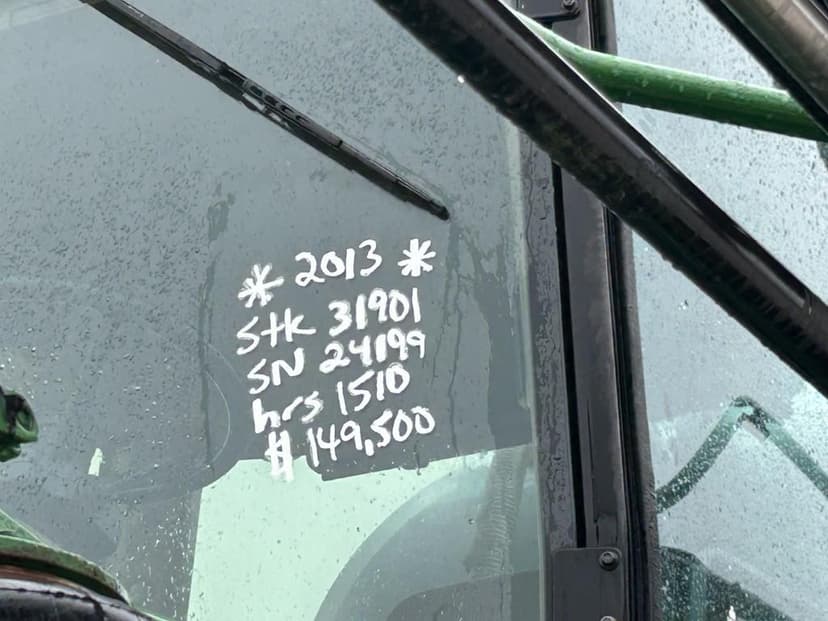 * 2013 *
Stk 31901
SN 24199
hrs 1510
$ 149,500